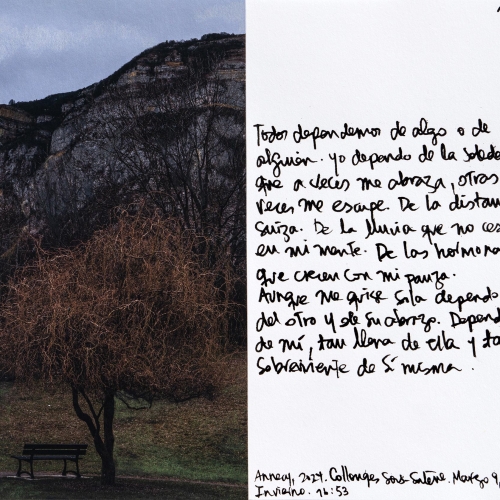 Todos dependemos de algo o de
alguien. yo dependo de la soleda
que a veces me abraza, otras
veces me escupe. De la distan
suiza. De la lluvia que no ces
en mi mente. De las hormona
que crecen con mi panza.
Aunque me quise sola depend
del otro y de su abrazo. Depend
de mí, tan llena de ella y ta
sobreviviente de sí misma.
Annecy, 2024. Collonges Sous Salève. Marzo 9
Invierno. 16:53